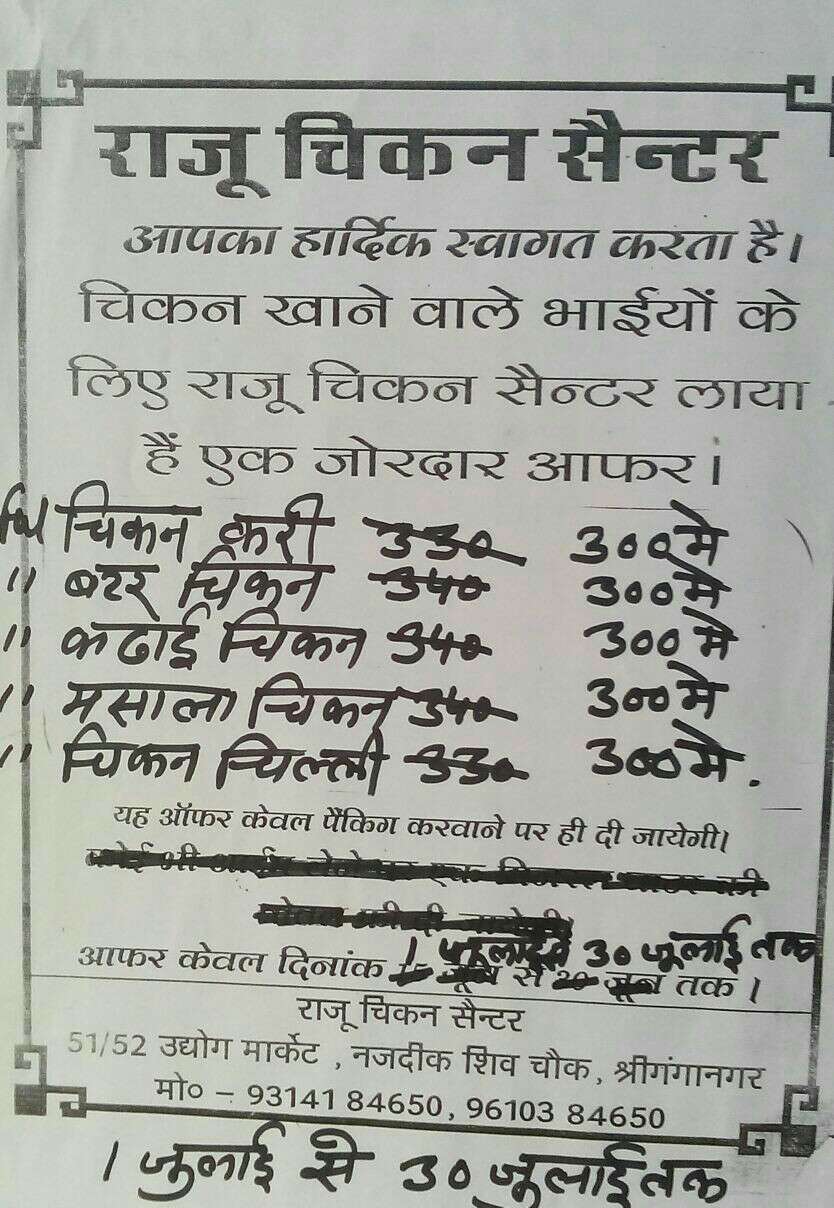 राजू चिकन सैन्टर
आपका हार्दिक स्वागत करता है।
चिकन खाने वाले भाईयों के
लिए राजू चिकन सैन्टर लाया
हैं एक जोरदार आफर।
चिकन करी 330 300 मे
" बटर चिकन 340 300 मे
" कढाई चिकन 340 300 मे
" मसाला चिकन 340 300 मे
" चिकन चिल्ली 330 300 मे.
यह ऑफर केवल पैकिंग करवाने पर ही दी जायेगी।
1 जुलाई से 30 जूलाई तक
आफर केवल दिनांक जून से 30 जून तक।
राजू चिकन सैन्टर
51/52 उद्योग मार्केट, नजदीक शिव चौक, श्रीगंगानगर
मो० - 93141 84650, 96103 84650
1 जुलाई से 30 जूलाई तक